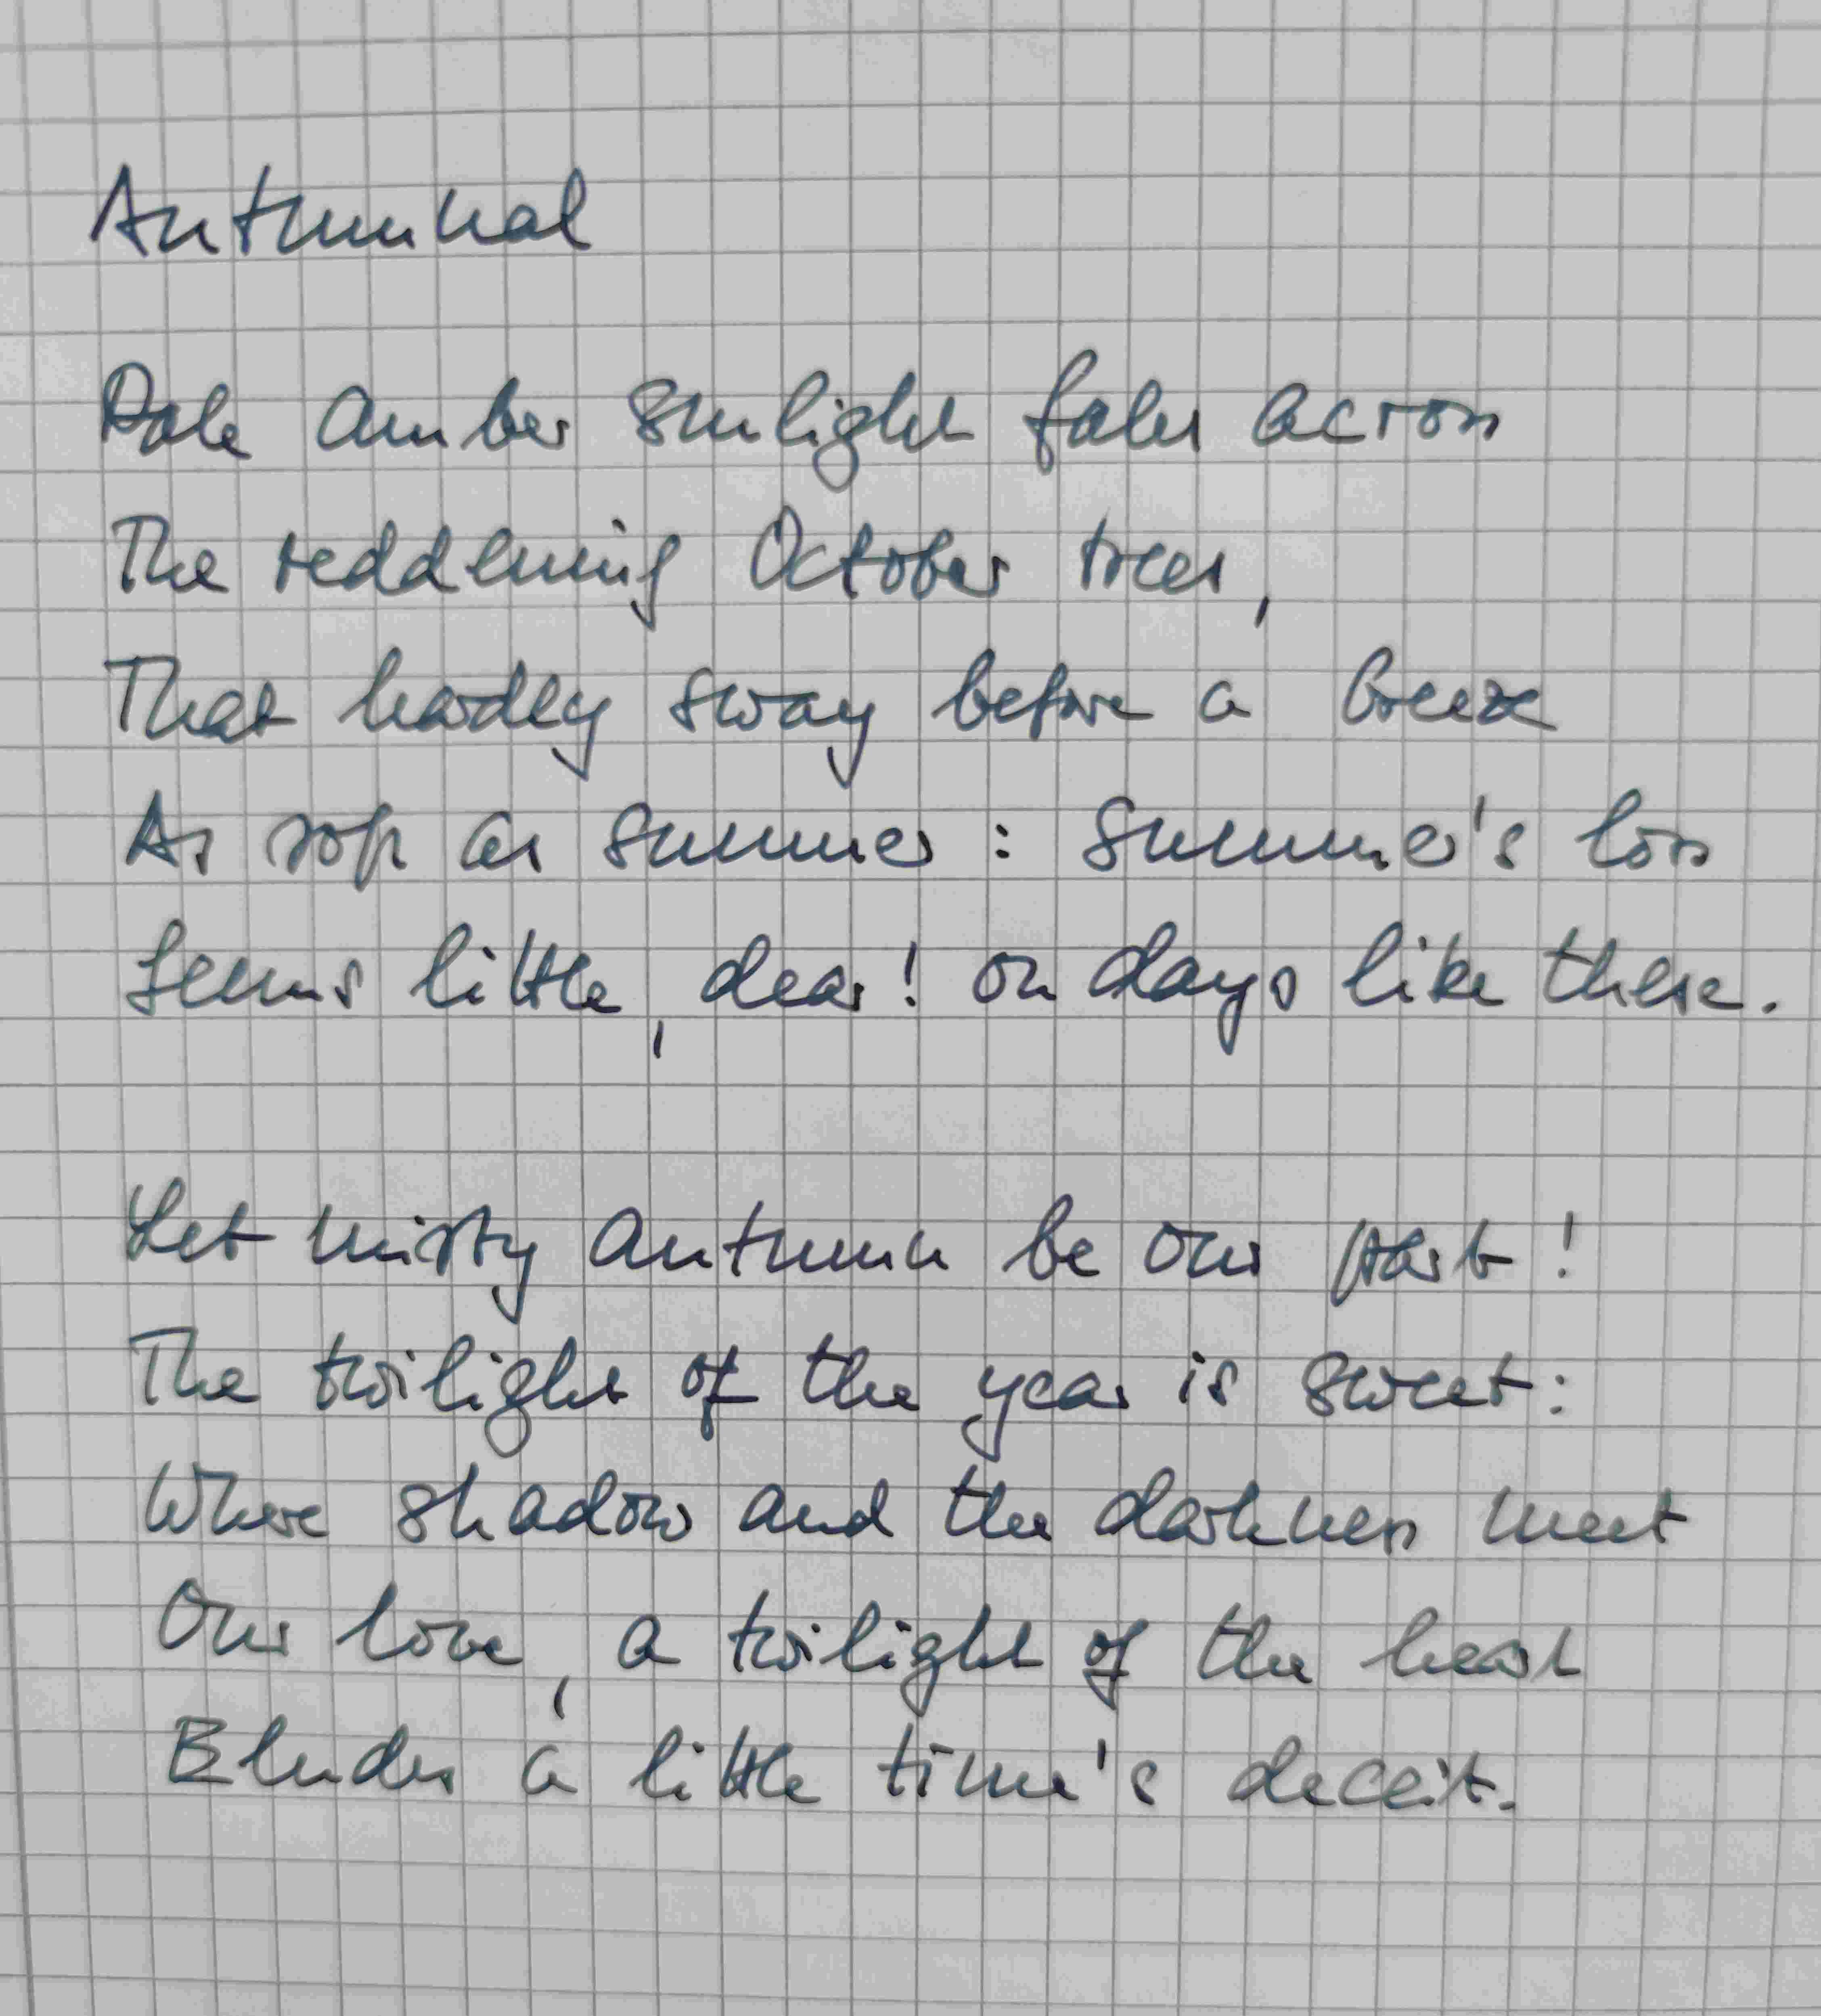 Autumnal
Pale amber sunlight falls across
The reddening October trees,
That hardly sway before a breeze
As soft as summer: summer's loss
Seems little, dear! on days like these.
Let misty autumn be our part!
The twilight of the year is sweet:
Where shadow and the darkness meet
Our love, a twilight of the heart
Eludes a little time's deceit.